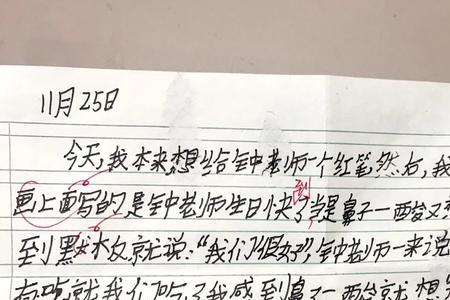 11月25日
今天,我本来想给钟老师一个红笔然后,我
画上面写的是钟老师生日快了当是鼻子一酸又
到 默 就说:“我们很好”,钟老师一来说
我们 了我感到鼻子一酸就想